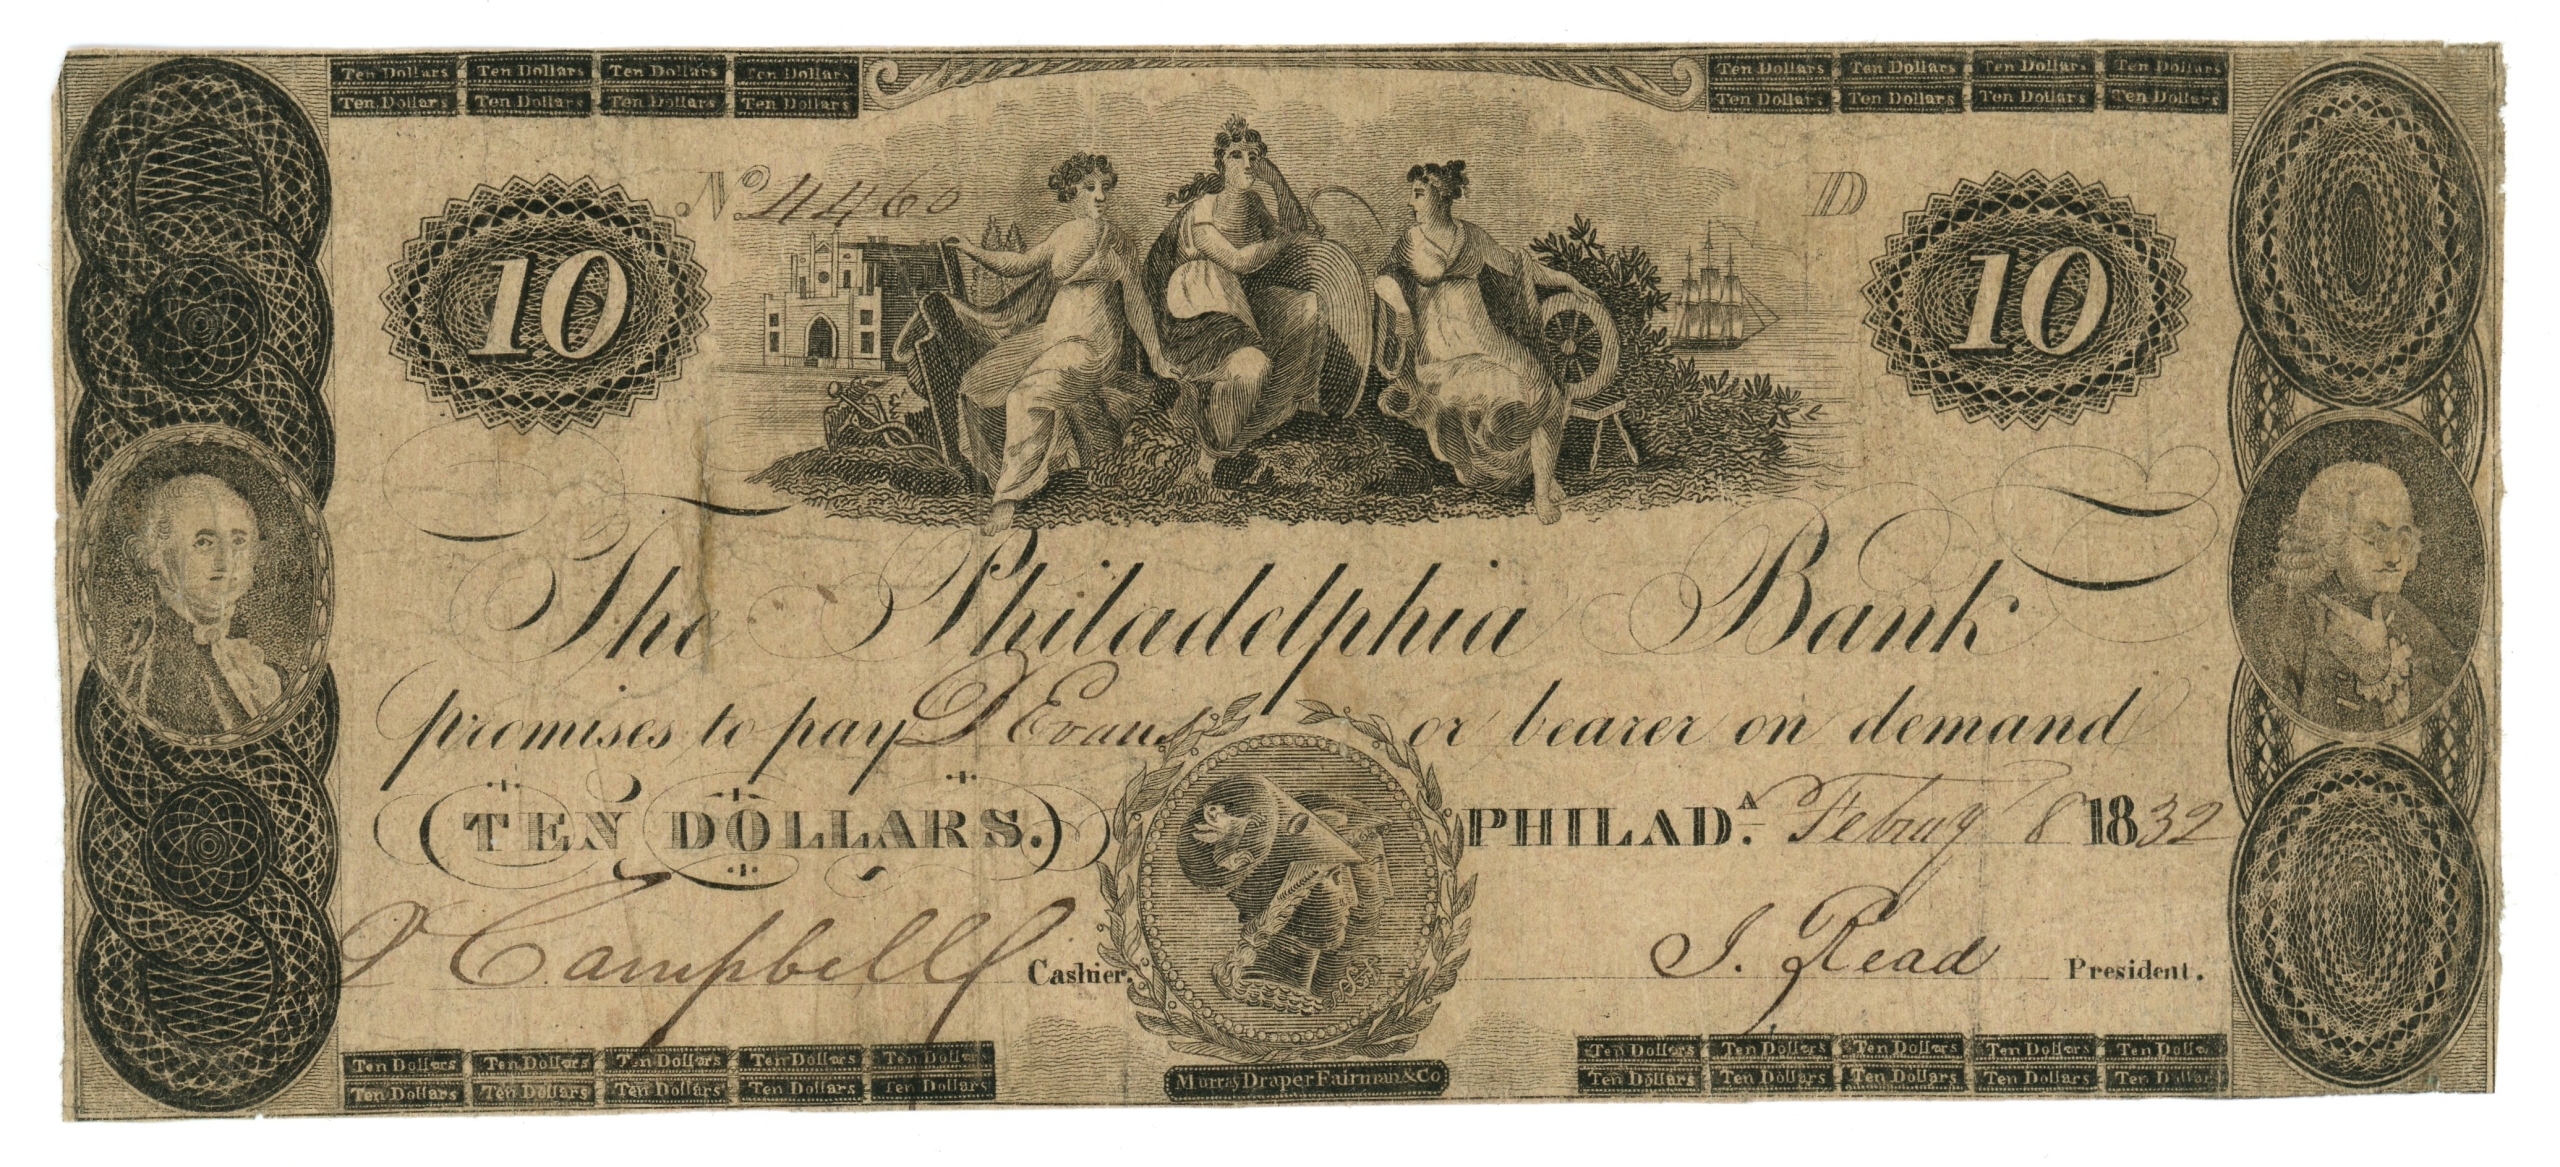 Ten Dollars Ten Dollars Ten Dollars Ten Dollars
Ten Dollars Ten Dollars Ten Dollars Ten Dollars
Ten Dollars Ten Dollars Ten Dollars Ten Dollars
Ten Dollars Ten Dollars Ten Dollars Ten Dollars
No. 4460
D
10
10
The Philadelphia Bank
promises to pay D Evans or bearer on demand
(TEN DOLLARS.) PHILADA. Febuy 8 1832
Campbell Cashier. J. Read President.
Ten Dollars Ten Dollars Ten Dollars Ten Dollars Ten Dollars
Ten Dollars Ten Dollars Ten Dollars Ten Dollars Ten Dollars
Murray Draper Fairman & Co
Ten Dollars Ten Dollars Ten Dollars Ten Dollars Ten Dollars
Ten Dollars Ten Dollars Ten Dollars Ten Dollars Ten Dollars